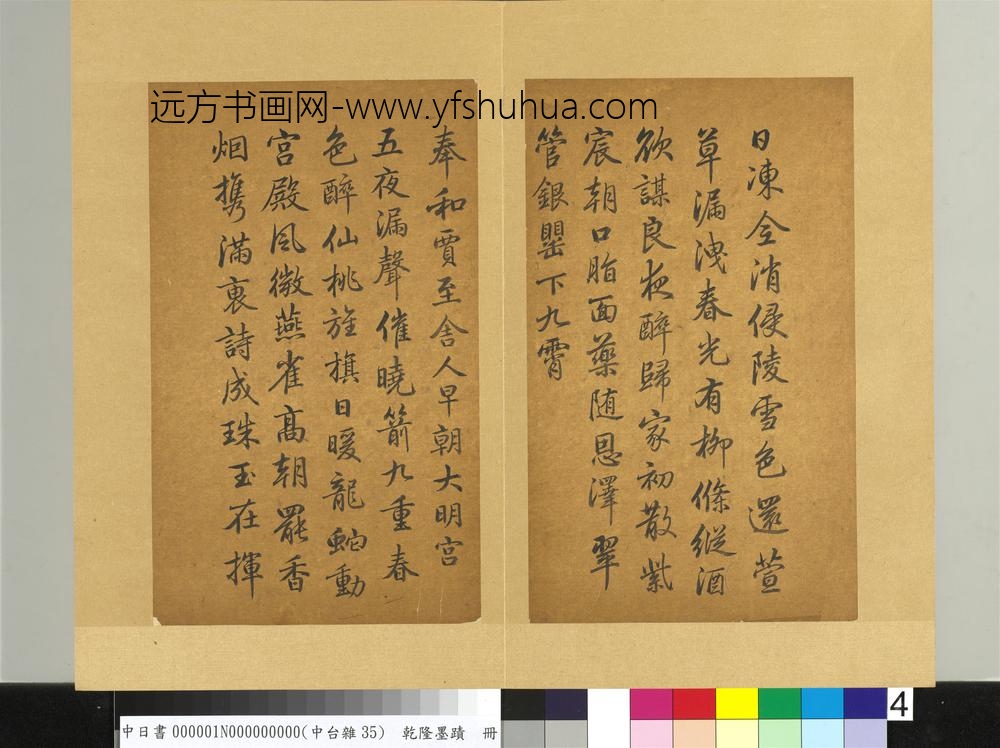 远方书画网-www.yfshuhua.com
日凍全消侵陵雪色還萱
草漏洩春光有柳條縱酒
欲謀良夜醉歸家初散紫
宸朝口脂面藥随恩澤翠
管銀罌下九霄
奉和賈至舍人早朝大明宮
五夜漏聲催曉箭九重春
色醉仙桃旌旗日暖龍蛇動
宮殿風微燕雀高朝罷香
烟携滿裒詩成珠玉在揮
中日書 000001N000000000(中台雜 35) 乾隆墨蹟 冊
4